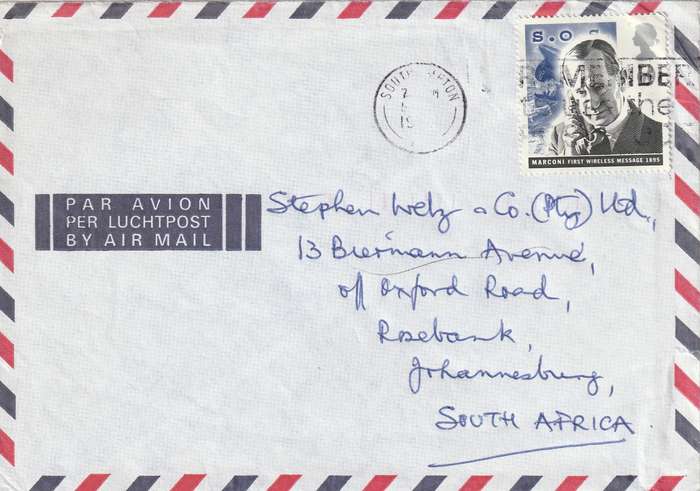 S.O
MARCONI FIRST WIRELESS MESSAGE 1895
PAR AVION
PER LUCHTPOST
BY AIR MAIL
Stephen Welz & Co. (Pty) Ltd.,
13 Biermann Avenue,
off Oxford Road,
Rosebank,
Johannesburg,
SOUTH AFRICA